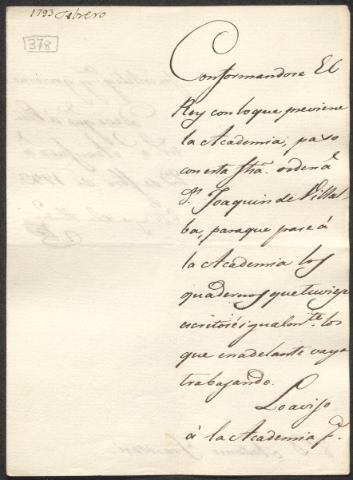 1793 Febrero
378
Conformandose El
Rey con lo que previene
la Academia, paso
con esta fha. orden á
Dn. Joaquin de Villal
ba, para que pase á
la Academia los
quadernos que tuviese
escritos, é igualmte. los
que en adelante vaya
trabajando.
Lo aviso
á la Academia pa.